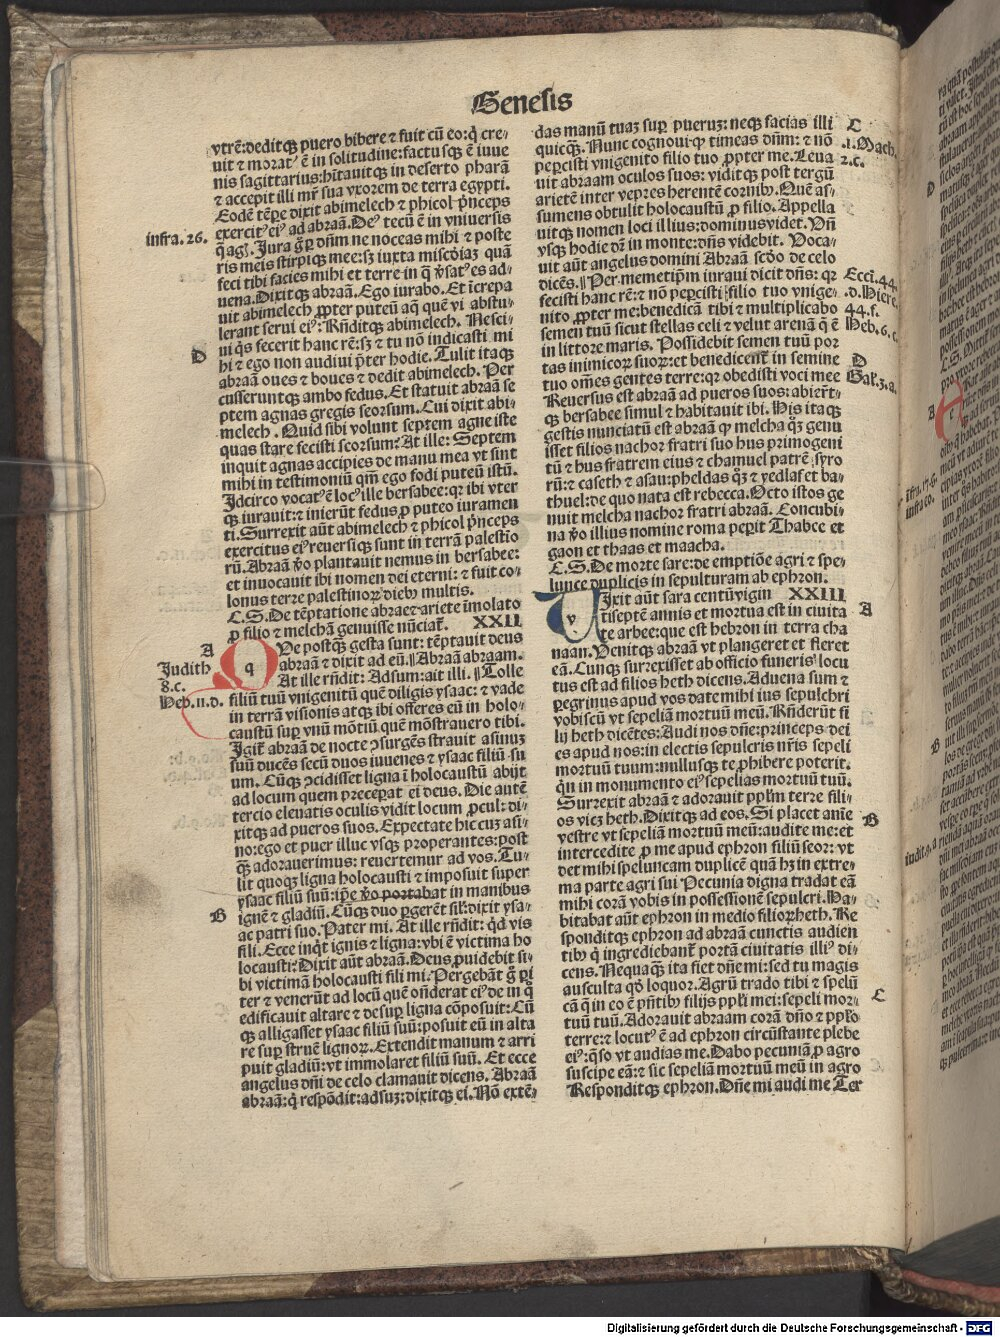 Genesis
vtrē: deditq̃ puero bibere ⁊ fuit cū eo: q̇ cre-
uit ⁊ morat᷒ ē in solitudine: factusq̃ ē iuue
nis sagittarius: hītauitq̃ in deserto pharā
⁊ accepit illi mr̄ sua vxorem de terra egypti.
Eodē tēpe dixit abimelech ⁊ phicol p̄nceps
exercit᷒ ei᷒ ad abraā. De᷒ tecū ē in vniuersis
infra. 26.
q̄ agis. Iura g̊ p dn̄m ne noceas mihi ⁊ poste
ris meis stirpiq̃ mee: sꝫ iuxta miscd̄iaꝫ quā
feci tibi facies mihi et terre in q̄ v̄sat᷒ es ad-
uena. Dixitq̃ abraā. Ego iurabo. Et īcrepa
uit abimelech ꝓpter puteū aq̄ quē vi abstu-
lerant serui ei᷒: Rn̄ditq̃ abimelech. Nesci-
ui q̇s fecerit hanc rē: sꝫ ⁊ tu nō indicasti mi
D
hi ⁊ ego non audiui p̄ter hodie. Tulit itaq̃
abraā oues ⁊ boues ⁊ dedit abimelech. Per
cusseruntq̃ ambo fedus. Et statuit abraā se
ptem agnas gregis seorsum. Cui dixit abi-
melech. Quid sibi volunt septem agne iste
quas stare fecisti seorsum? At ille: Septem
inquit agnas accipies de manu mea vt sint
mihi in testimoniū qm̄ ego fodi puteū istū.
Idcirco vocat᷒ ē loc᷒ ille bersabee: qꝛ ibi vter
q̃ iurauit: ⁊ inierūt fedus ꝓ puteo iuramen
ti. Surrexit aūt abimelech ⁊ phicol p̄nceps
exercitus ei᷒ reuersiq̃ sunt in terrā palestio
rū. Abraā v̄o plantauit nemus in bersabee:
et inuocauit ibi nomen dei eterni: ⁊ fuit co-
lonus terre palestinoꝝ dieb᷒ multis.
C. S. De tēptatione abrae ⁊ ariete īmolato
ꝓ filio ⁊ melchā genuisse nūciat᷒. XXII
A
Judith
8. c.
Heb. 11. d.
QVe postq̄ gesta sunt: tēptauit deus
abraā ⁊ dixit ad eū. Abraā abraam.
At ille rn̄dit: Adsum: ait illi. Tolle
filiū tuū vnigenitū quē diligis ysaac: ⁊ vade
in terrā visionis atq̃ ibi offeres eū in holo-
caustū suꝑ vnū mōtiū quē mōstrauero tibi.
Igit᷒ abraā de nocte ꝯsurgēs strauit asinuꝫ
suū ducēs secū duos iuuenes ⁊ ysaac filiū su
um. Cūq̃ ꝯcidisset ligna ī holocaustū abijt
ad locum quem preceꝑat ei deus. Die autē
tercio eleuatis oculis vidit locum ꝓcul: di-
xitq̃ ad pueros suos. Expectate hic cuꝫ asi-
no: ego et puer illuc vsq̃ properantes: post
q̄ adorauerimus: reuertemur ad vos. Tu-
lit quoqꝫ ligna holocausti ⁊ imposuit super
ysaac filiū suū: ip̄e v̄o portabat in manibus
B
ignē ⁊ gladiū. Cūq̃ duo ꝑgerēt sil᷒: dixit ysa-
ac patri suo. Pater mi. At ille rn̄dit: q̇d vis
fili. Ecce inq̇t ignis ⁊ ligna: vbi ē victima ho
locausti? Dixit aūt abraā. Deus ꝓuidebit si-
bi victimā holocausti fili mi. Pergebāt g̊ pi
ter ⁊ venerūt ad locū quē on̄derat ei᷒ de in q̊
edificauit altare ⁊ desuꝑ ligna cōposuit: Cū
q̃ alligasset ysaac filiū suū: posuit eū in alta
re suꝑ struē lignoꝝ. Extendit manum ⁊ arri
puit gladiū: vt immolaret filiū suū. Et ecce
angelus dn̄i de celo clamauit dicens. Abraā
abraā: q̇ respōdit: adsuꝫ: dixitq̃ ei. Nō extē-
das manū tuaꝫ suꝑ pueruꝫ: neq̃ facias illi
quicq̄. Nunc cognoui ꝙ timeas dn̄m: ⁊ nō
C
.1. Mach.
2. c.
peꝑcisti vnigenito filio tuo ꝓpter me. Leua
uit abraam oculos suos: viditq̃ post tergū
arietē inter vepres herentē cornib᷒. Quē as-
sumens obtulit holocaustū ꝓ filio. Appella
uitq̃ nomen loci illius: dominus videt. Vn̄
vsq̃ hodie dr̄ in monte: dn̄s videbit. Voca-
uit aūt angelus domini Abraā scd̄o de celo
dicēs. Per memetip̄m iuraui dicit dn̄s: qꝛ
fecisti hanc rē: ⁊ nō peꝑcisti filio tuo vnige-
nito ꝓpter me: benedicā tibi ⁊ multiplicabo
semen tuū sicut stellas celi ⁊ velut arenā q̄ ē
Eccī. 44.
.d. Hiere.
44. f.
Heb. 6. c.
in littore maris. Possidebit semen tuū por
tas inimicoꝝ suoꝝ: et benedicent᷒ in semine
tuo om̄es gentes terre: qꝛ obedisti voci mee
D
Gal. 3. a.
Reuersus est abraā ad pueros suos: abierūt-
q̃ bersabee simul ⁊ habitauit ibi. His itaq̃
gestis nunciatū est abraā ꝙ melcha q̊ꝫ genu
isset filios nachor fratri suo hus primogeni
tū ⁊ hus fratrem eius ⁊ chamuel patrē syro
rū: ⁊ caseth ⁊ asau: pheldas q̊ꝫ ⁊ yedlaf et ba-
thuel: de quo nata est rebecca. Octo istos ge
nuit melcha nachor fratri abraā. Concubi-
na v̄o illius nomine roma peꝑit Thabee et
gaon et thaas et maacha.
C. S. De morte sare: de emptiōe agri ⁊ spe-
lunce duplicis in sepulturam ab ephron.
VIxit aūt sara centū vigin XXIII
A
tiseptē annis et mortua est in ciuita
te arbee: que est hebron in terra cha
naan. Venitq̃ abraā vt plangeret et fleret
eā. Cunq̃ surrexisset ab officio funeris locu
tus est ad filios heth dicens. Aduena sum ⁊
peregrinus apud vos date mihi ius sepulchri
vobiscū vt sepeliā mortuū meū. Rn̄derūt fi
lij heth dicētes: Audi nos dn̄e: princeps dei
es apud nos: in electis sepulcris nr̄is sepeli
mortuū tuum: nullusq̃ te ꝓhibere poterit.
q̇n in monumento ei᷒ sepelias mortuū tuū.
Surrexit abraā ⁊ adorauit ppl̄m terre fili-
os vicꝫ heth. Dixitq̃ ad eos. Si placet aīe
B
vestre vt sepeliā mortuū meū: audite me: et
intercedite ꝓ me apud ephron filiū seor: vt
det mihi speluncam duplicē quā hꝫ in extre-
ma parte agri sui Pecunia digna tradat eā
mihi corā vobis in possessionē sepulcri. Ha-
bitabat aūt ephron in medio filioꝝ heth. Re
sponditq̃ ephron ad abraā cunctis audien
tib᷒ q̇ ingrediebant᷒ portā ciuitatis illi᷒ di-
cens. Nequaq̄ ita fiet dn̄e mi: sed tu magis
ausculta qd̄ loquor. Agrū trado tibi ⁊ spelū
C
cā q̄ in eo ē pn̄tib᷒ filijs ppl̄i mei: sepeli mor-
tuū tuū. Adorauit abraam corā dn̄o ⁊ pplō
terre: ⁊ locut᷒ ē ad ephron circūstante plebe
ei᷒: q̄so vt audias me. Dabo pecuniā ꝓ agro
suscipe eā: ⁊ sic sepeliā mortuū meū in agro
Responditq̃ ephron. Dn̄e mi audi me Ter
Digitalisierung gefördert durch die Deutsche Forschungsgemeinschaft - DFG